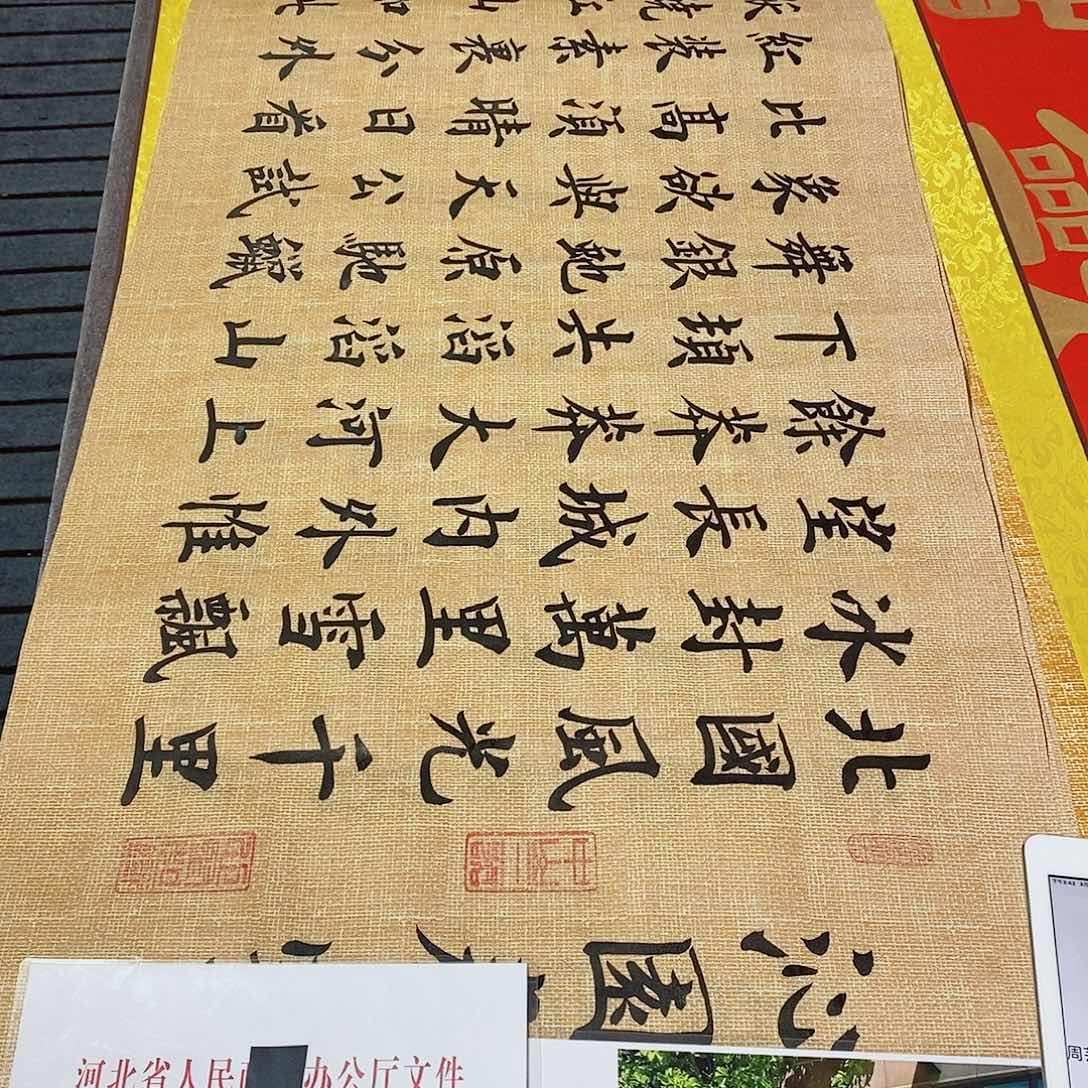 沁園
北國風光千里
冰封萬里雪飄
望長城內外惟
餘莽莽大河上
下頓失滔滔山
舞銀蛇原馳蠟
象欲與天公試
比高須晴日看
紅裝素裹分外
嬈江山如此
河北省人民 办公厅文件
周